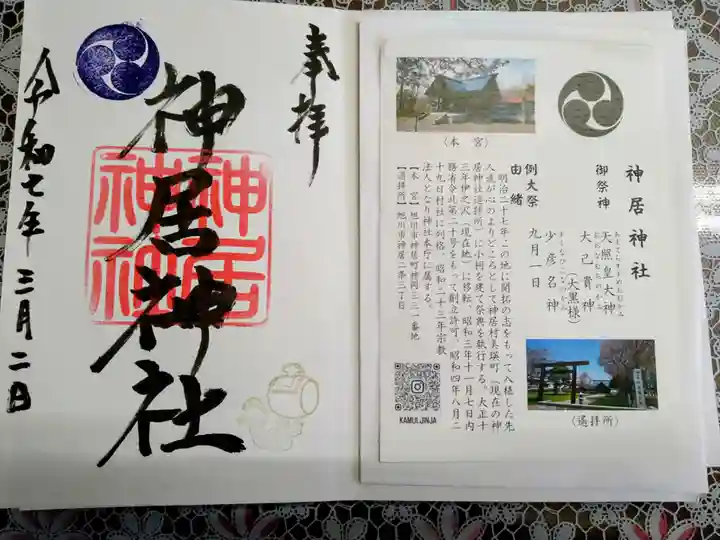 奉拝
神居神社
神居神社
令和七年三月二日
神居神社
御祭神
天照皇大神
あまてらすすめおおかみ
大己貴神
おおなむちのかみ
(大黒様)
少彦名神
すくなひこなのかみ
例大祭
九月一日
由緒
明治二十七年この地に開拓の志をもって入植した先
人達が心のよりどころとして神居村美瑛町(現在の神
居神社遥拝所)に小祠を建て祭典を執行する。大正十
三年伊之沢(現在地)に移転、昭和三年十一月七日内
務省令北第二十号をもって創立許可、昭和四年八月二
十九日村社に列格、昭和二十三年宗教
法人となり神社本庁に属する。
【本宮】旭川市神居町神岡三一番地
【遥拝所】旭川市神居二条三丁目
(本宮)
(遥拝所)
KAMUI.JINJA